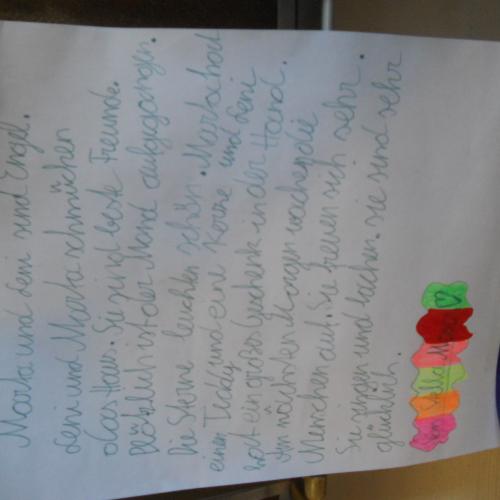 Marta und Leni sind Engel.
Leni und Marta schmücken
das Haus. Sie sind beste Freunde.
Plötzlich ist der Mond aufgegangen.
Die Sterne leuchten schön. Marta hat
einen Teddy und eine Kerze und Leni
hat ein großes Geschenk in der Hand.
Am nächsten Morgen wachen die
Menschen auf. Sie freuen sich sehr.
Sie singen und lachen. sie sind sehr
glücklich.
Von Stella M